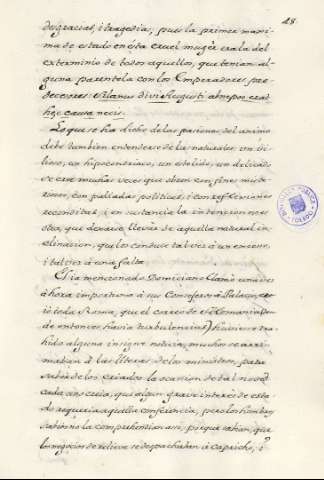 48
desgracias, i tragedia, pues la primer maxi-
ma de estado en ésta cruel muger era la del
exterminio de todos aquellos, que tenian al-
guna parentela con los Emperadores, pre-
decesores Silanus divi Augusti abnepos erat
hęc causa necis.
Lo que se ha dicho de las pasiones del animo
debe tambien entenderse de las naturales, un bi-
lioso, un hipocondriaco, un estolido, un delicado
se cree muchas veces que obren con fines miste-
riosos, con paliadas politicas, i con reflexiones
reconditas, i en sustancia la intencion no es
otra, que dexarse llevar de aquella natural in-
clinacion, que los conduce tal vez à un encuentro,
i tal vez à una falta.
El ia mencionado Domiciano llamò una vez
à hora importuna à sus Consejeros à Palacio, cre-
iò toda Roma, que el correo de Germania (don-
de entonces havia turbulencias) huviese tra-
hido alguna insigne noticia, muchos se arri-
maban à las literas de los ministros, para
saber de los criados la ocasion de tal novedad
cada uno creia, que algun grave interes de esta-
do requeria aquella conferencia, pero los hombres
sabios no la comprehendian asi, porque sabian, que
los negocios de relieve se despachaban à capricho, i
BIBLIOTECA PUBLICA
TOLEDO